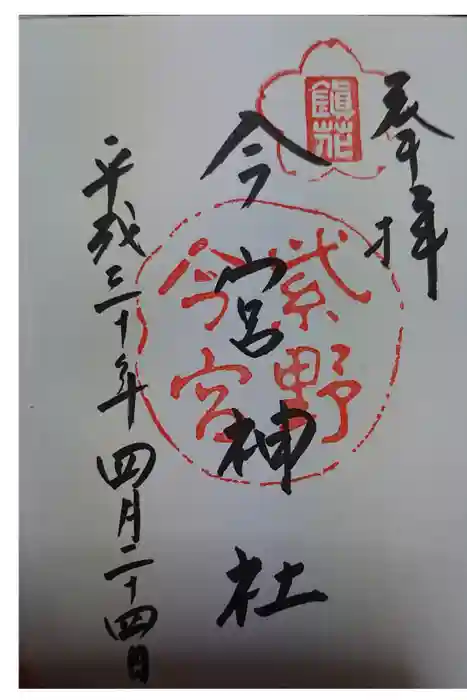 奉拝
鎮花
紫野
今宮
今宮神社
平成三十年四月二十四日